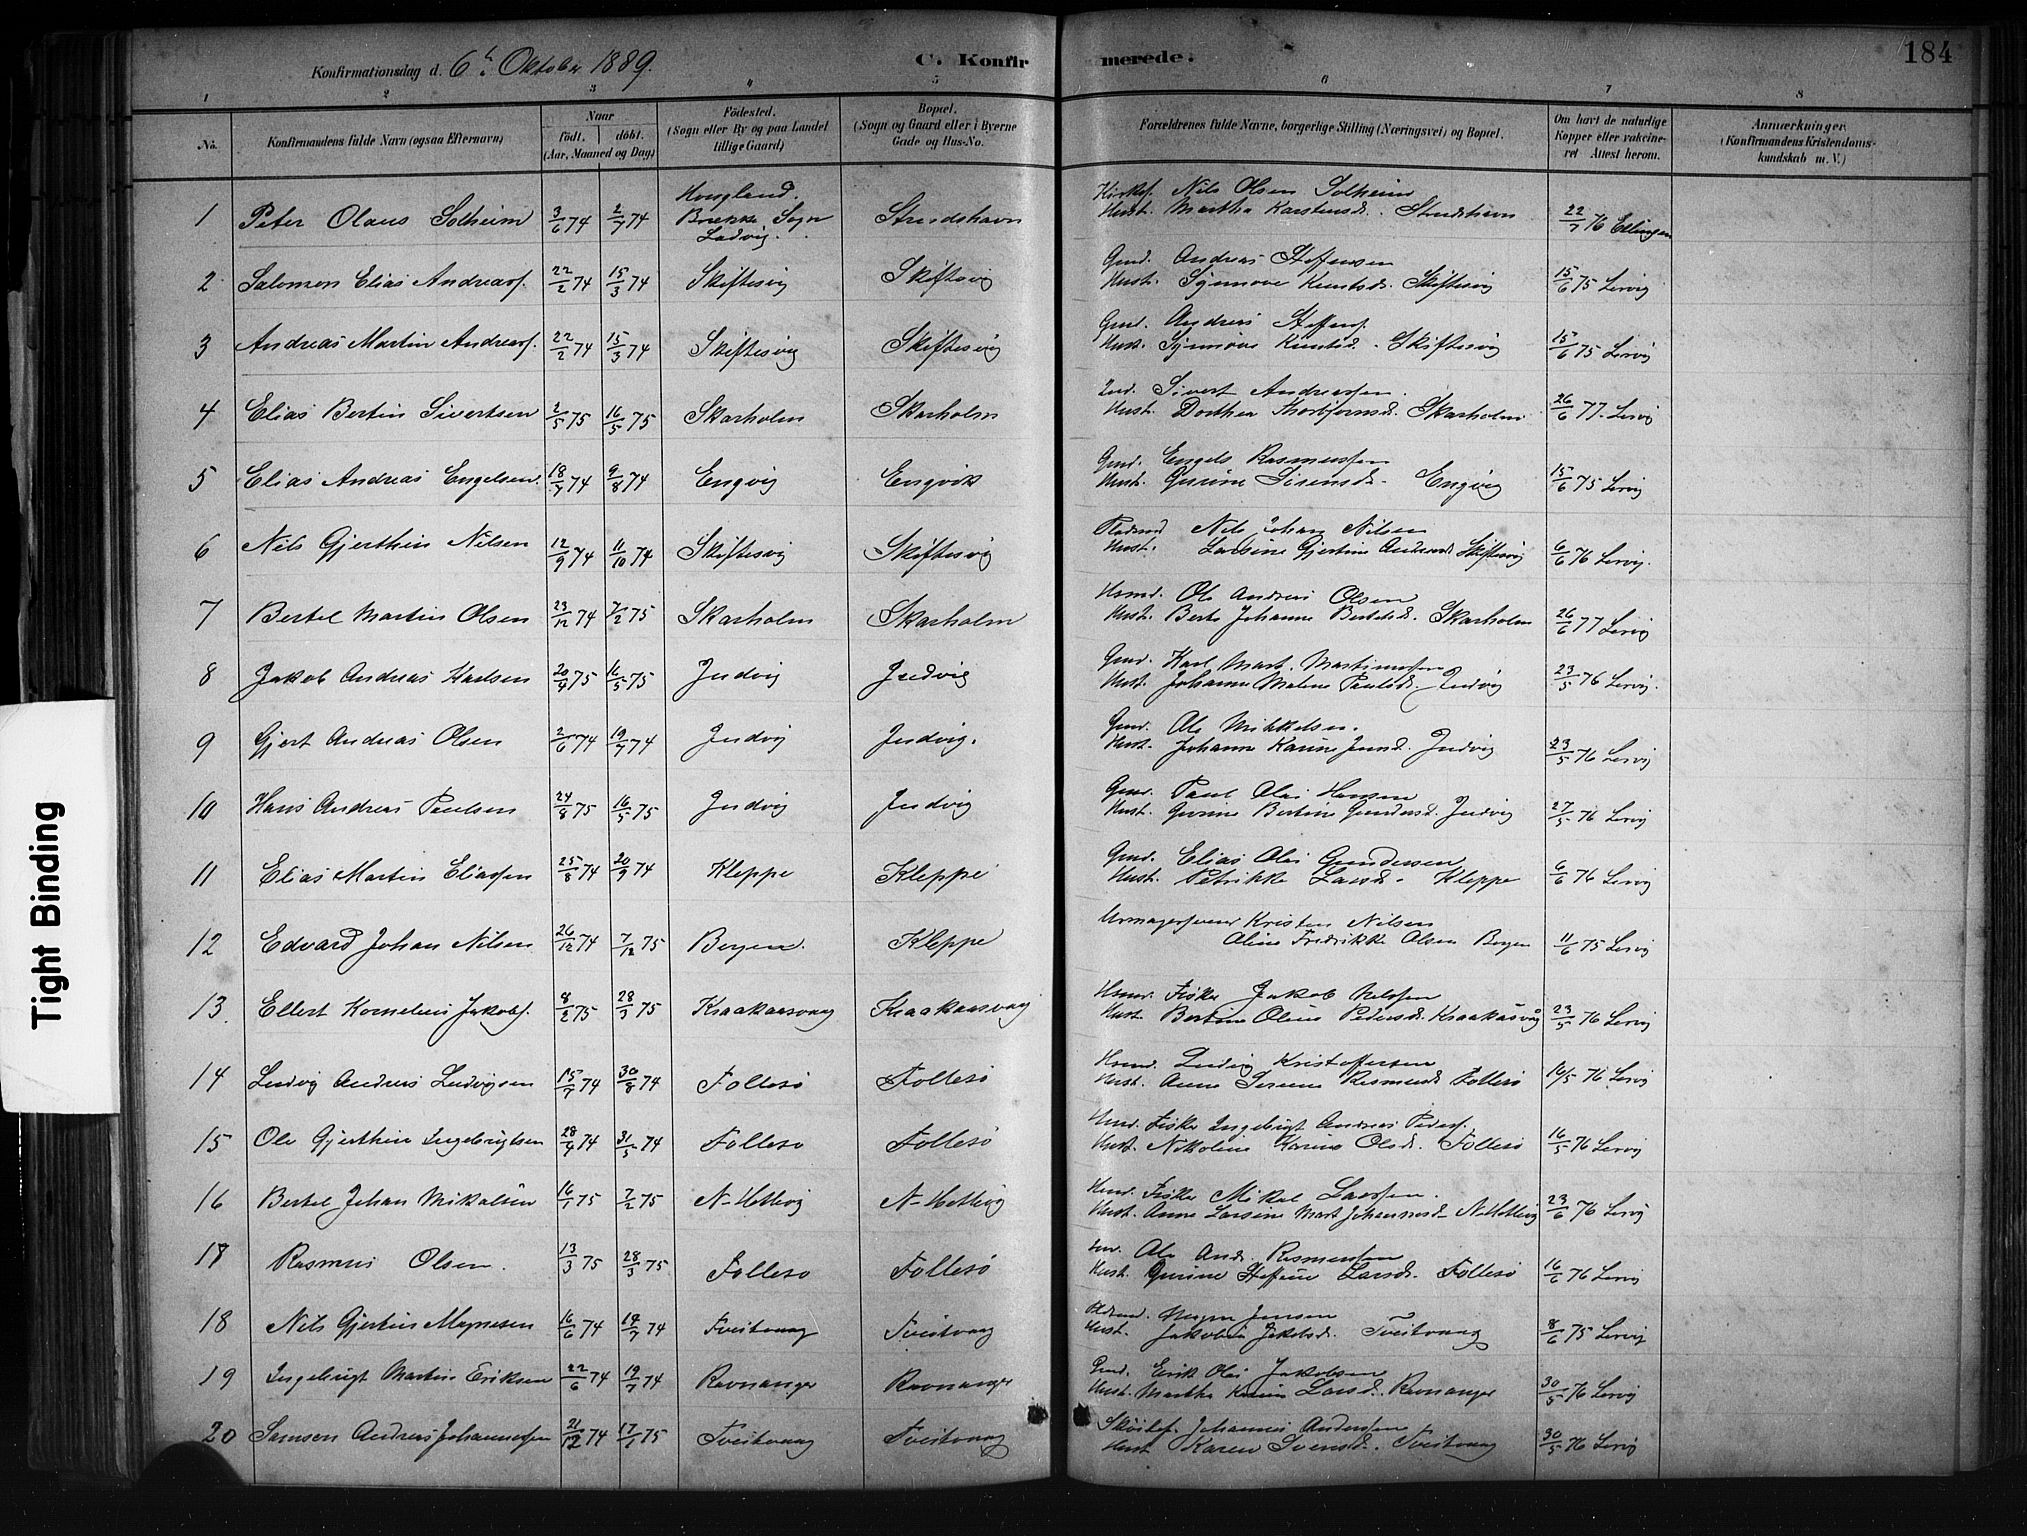 Konfirmationsdag d. 6te Oktober 1889. C. Konfirmerede. 184
1 2 3 4 5 6 7 8
No. Konfirmandens fulde Navn (ogsaa Efternavn) Naar født. døbt. (Aar, Maaned og Dag) Fødested. (Sogn eller By og paa Landet tillige Gaard) Bopæl. (Sogn og Gaard eller i Byerne Gade og Hus-No. Forældrenes fulde Navne, borgerlige Stilling (Næringsvei) og Bopæl. Om havt de naturlige Kopper eller vakcineret Attest herom. Anmærkninger (Konfirmandens Kristendomskundskab m. V.)
1 Peter Olaus Solheim 3/6 74 2/7 74 Brekke Sogn Ladvig. Nils Olsen Solheim
Hust. Martha Karstensd. 22/7 76
2 Salomon Elias Andreasf. 22/2 74 15/3 74 Skiftesvig Skiftesvig Gmd. Andreas Steffensen
Hust. Synnøve Knutsd. Skiftesvig 15/6 75 Lervig
3 Andreas Martin Andreasf. 22/2 74 15/3 74 Skiftesvig Skiftesvig Gmd. Andreas Steffens.
Hust. Synnøve Knutsd. Skiftesvig 15/6 75 Lervig
4 Elias Bertin Sivertsen 2/5 75 16/5 75 Skarholm Skarholm Sivert Andreassen.
Hust. Dorthea Thorbjørnsd. Skarholm 26/6 77. Lervig
5 Elias Andreas Engelsen. 18/7 74 9/8 74 Engvig Engvik Gmd. Engels Rasmussen
Hust. Gurine Sirensd. Engvig 15/6 75 Lervig
6 Nils Gjerthin Nilsen 12/9 74 11/10 74 Skiftesvig Skiftesvig Pladsmd Nils Johan Nilsen
Hust. Larsine Gjertine Skiftesvig 6/6 76 Lervig.
7 Bertel Martin Olsen 23/12 74 7/2 75 Skarholm Skarholm Hsmd. Ole Andreas Olsen
Hust. Berte Johanne Bertelsd. Skarholm 26/6 77 Lervig
8 Jakob Andreas Karlsen 20/4 75 16/5 75 Judvig Judvig Gmd. Karl Mart. Martinussen
Hust. Johanne Malene Paulsd. Judvig 23/5 76 Lervig.
9 Gjert Andreas Olsen 2/6 74 19/7 74 Judvig Judvig. Gmd. Ole Mikkelsen.
Hust. Johanne Karine Judvig 23/5 76 Lervig
10 Hans Andreas Paulsen 24/8 75 16/5 75 Judvig Judvig Gmd. Paul Olai Hansen
Hust. Gurine Bertine Gundersd. Judvig 27/5 76 Lervig
11 Elias Martin Eliassen 25/8 74 20/9 74 Kleppe Kleppe Gmd. Elias Olai Gundersen
Hust. Petrikke Larsd. Kleppe 6/6 76 Lervig
12 Edvard Johan Nilsen 26/12 74 7/12 75 Bergen. Kleppe Urmagersvend Kristen Nilsen
Aline Fredrikke Olsen Bergen 11/6 75 Lervig
13 Ellert Kornelius Jakobs. 8/2 75 28/3 75 Kraakaasvaag Kraakaasvaag Hsmd. Fisker Jakob Nilssen
Hust. Bertine Oline Pedersd. Kraakåsvåg 23/5 76 Lervig
14 Ludvig Andreas Ludvigsen 15/7 74 30/8 74 Follesø Follesø Hsmd. Ludvig Kristoffersen
Hust. Anne Serine Rasmusd. Follesø 16/5 76 Lervig
15 Ole Gjerthin Ingebrigtsen 28/4 74 31/5 74 Follesø Follesø Hmd. Fisker Ingebrigt Andreas Peders.
Hust. Nikoline Karine Olsd. Follesø 16/5 76 Lervig
16 Bertel Johan Mikalsen 16/1 75 7/2 75 N-Hetlevig N-Hetlevig Hmd. Fisker Mikal Larssen.
Hust. Anne Larsine Mart Johannesd. N Hetlevig 23/6 76 Lervig
17 Rasmus Olsen. 13/3 75 28/3 75 Follesø Follesø Ole Andr. Rasmussen
Hust. Gurine Steffine Larsd. Follesø 16/6 76 Lervig
18 Nils Gjertin Magnesen 16/6 74 19/7 74 Tveitvaag Tveitvaag Pladsmd. Magne Jensen
Hust. Jakobine Jakobsd. Tveitvaag 8/6 75 Lervig
19 Ingebrigt Martin Eriksen 22/6 74 19/7 74 Ravnanger Ravnanger Gmd. Erik Olai Jakobsen
Hust. Martha Karine Larsd. Ravnanger 30/5 76 Lervig
20 Samson Andreas Johannessen 21/12 74 17/1 75 Tveitvaag Tveitvaag Johannes Anderssen
Hust. Karen Svensd. Tveitvaag 30/5 76 Lervig
Tight Binding